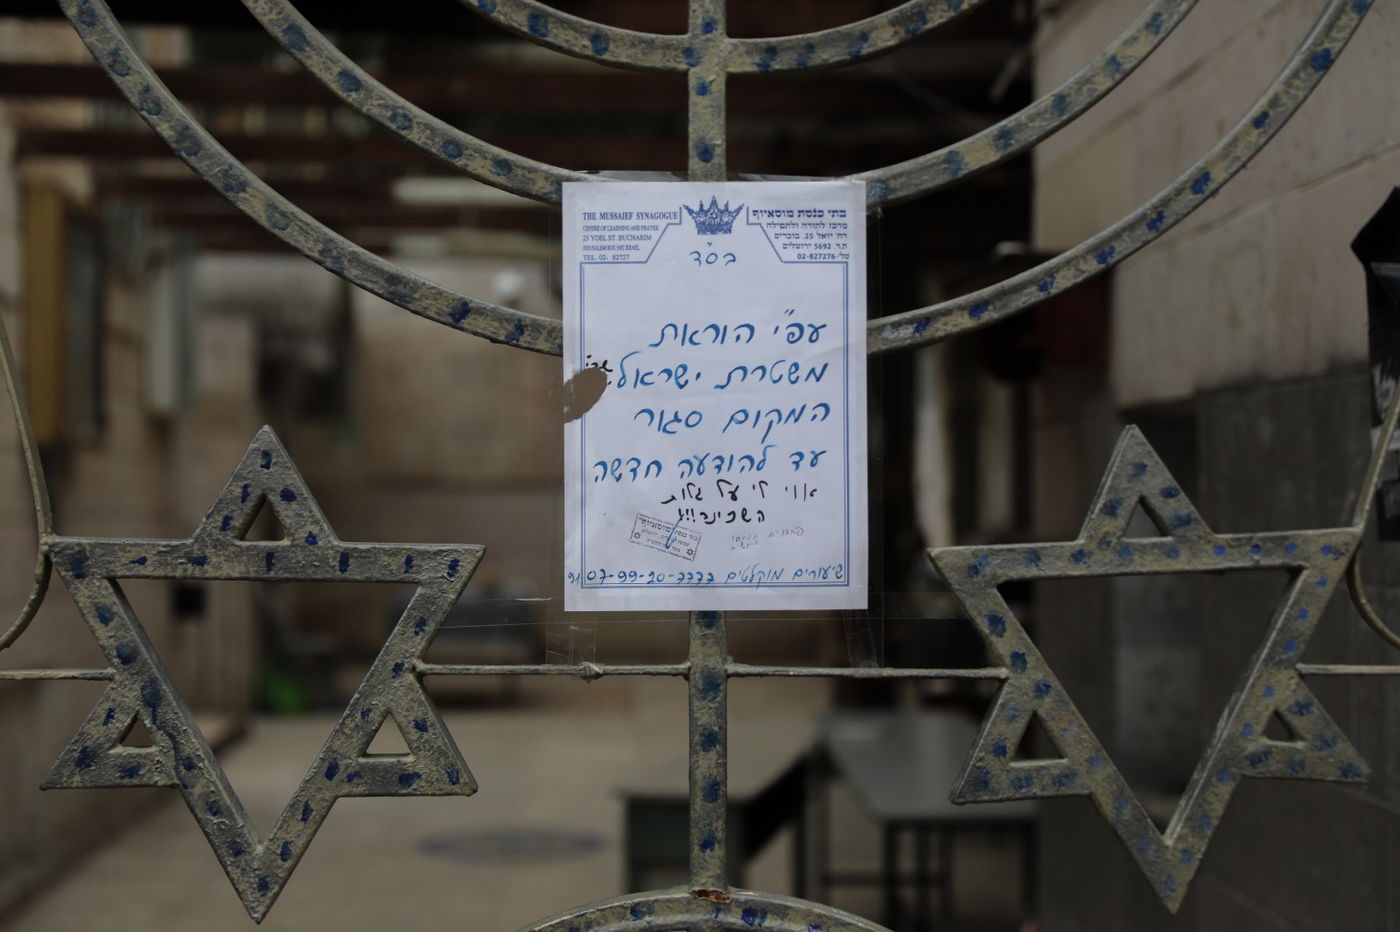 THE MUSSAIEF SYNAGOGUE
CENTRE OF LEARNING AND PRAYER
25 YOEL ST. BUCHARIM
JERUSALEM BOX 5692 ISRAEL
TEL. 02- 82727
בתי כנסת מוסאיוף
מרכז לתורה ולתפילה
רח׳ יואל 25, בוכרים
ת.ד. 5692 ירושלים
טל׳-02-827276
בס"ד
עפ"י הוראת
משטרת ישראל
המקום סגור
עד להודעה חדשה
אוי לי על גלות
השכינה!!!
בתי כנסת מוסאיוף
שיעורים מוקלטים 07-99-20-7777